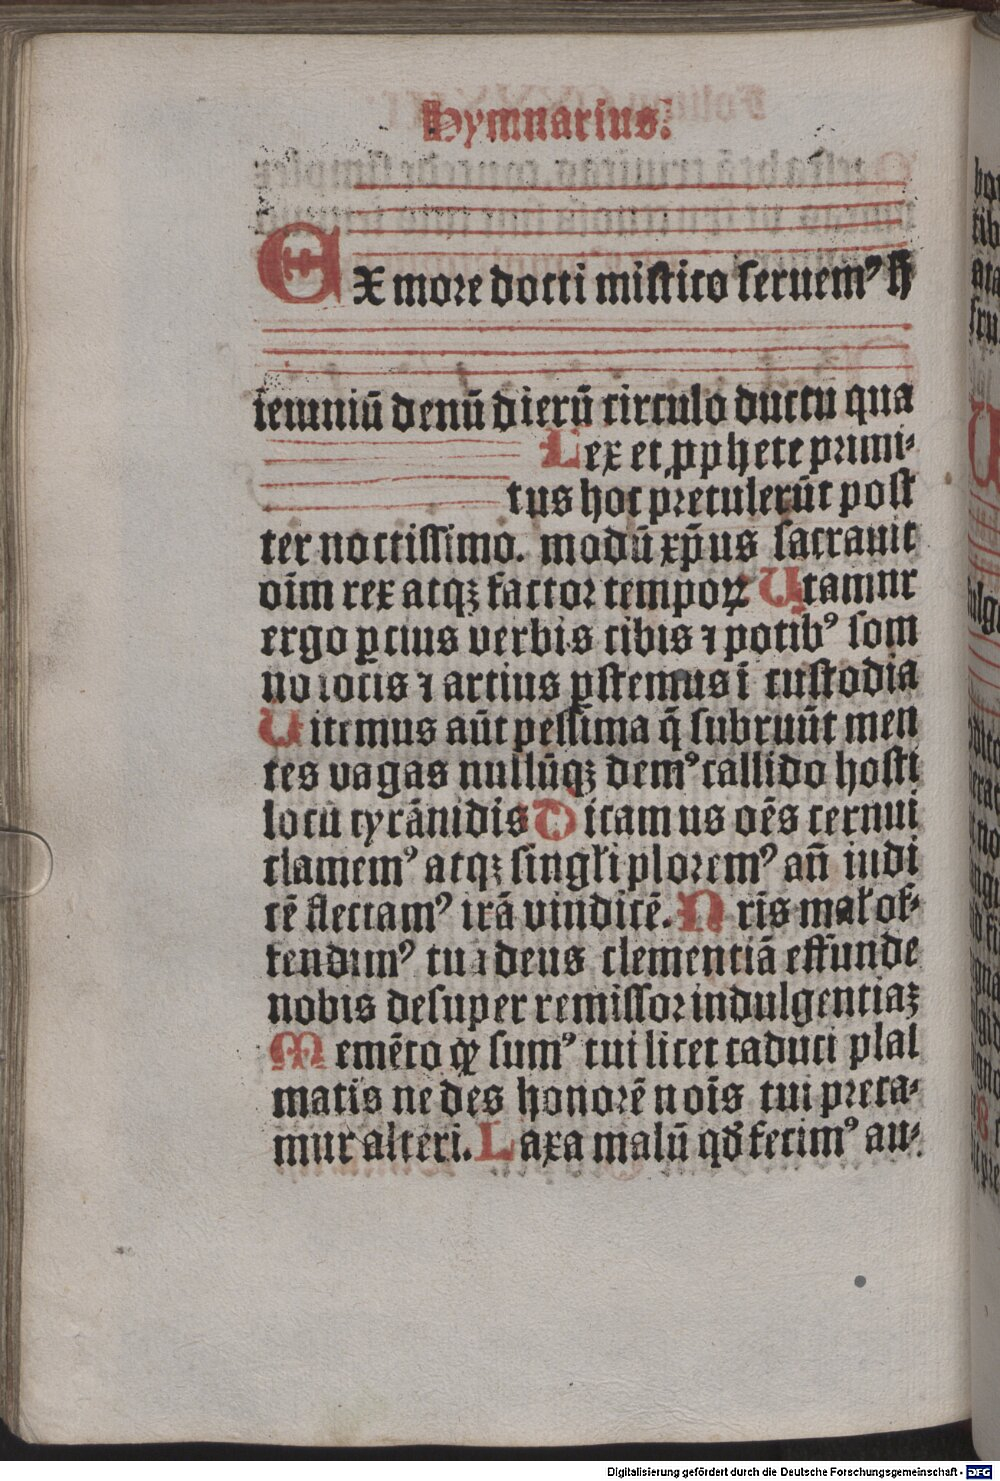 Hymnarius.
EX more docti mistico seruemꝰ hͦ
ieiuniū denū dierū circulo ductu qua
Lex et ꝓphete primi-
tus hoc pretulerūt post
ter noctissimo. modū xp̄us sacrauit
oīm rex atqꝫ factor tempoꝝ Utamur
ergo ꝑcius verbis cibis ⁊ potibꝰ som
no iocis ⁊ artius ꝑstemus ī custodia
Uitemus aūt pessima q̄ subruūt men
tes vagas nullūqꝫ demꝰ callido hosti
locū tyrānidis Dicamus oēs cernui
clamemꝰ atqꝫ singłi ploremꝰ an̄ iudi
cē flectamꝰ irā vindicē. Nr̄is mał of-
fendimꝰ tuā deus clementiā effunde
nobis desuper remissor indulgentiaꝫ
Memēto qꝫ sumꝰ tui licet caduci plal
matis ne des honorē noīs tui preca-
mur alteri. Laxa malū qd̄ fecimꝰ au-
Digitalisierung gefördert durch die Deutsche Forschungsgemeinschaft - DFG